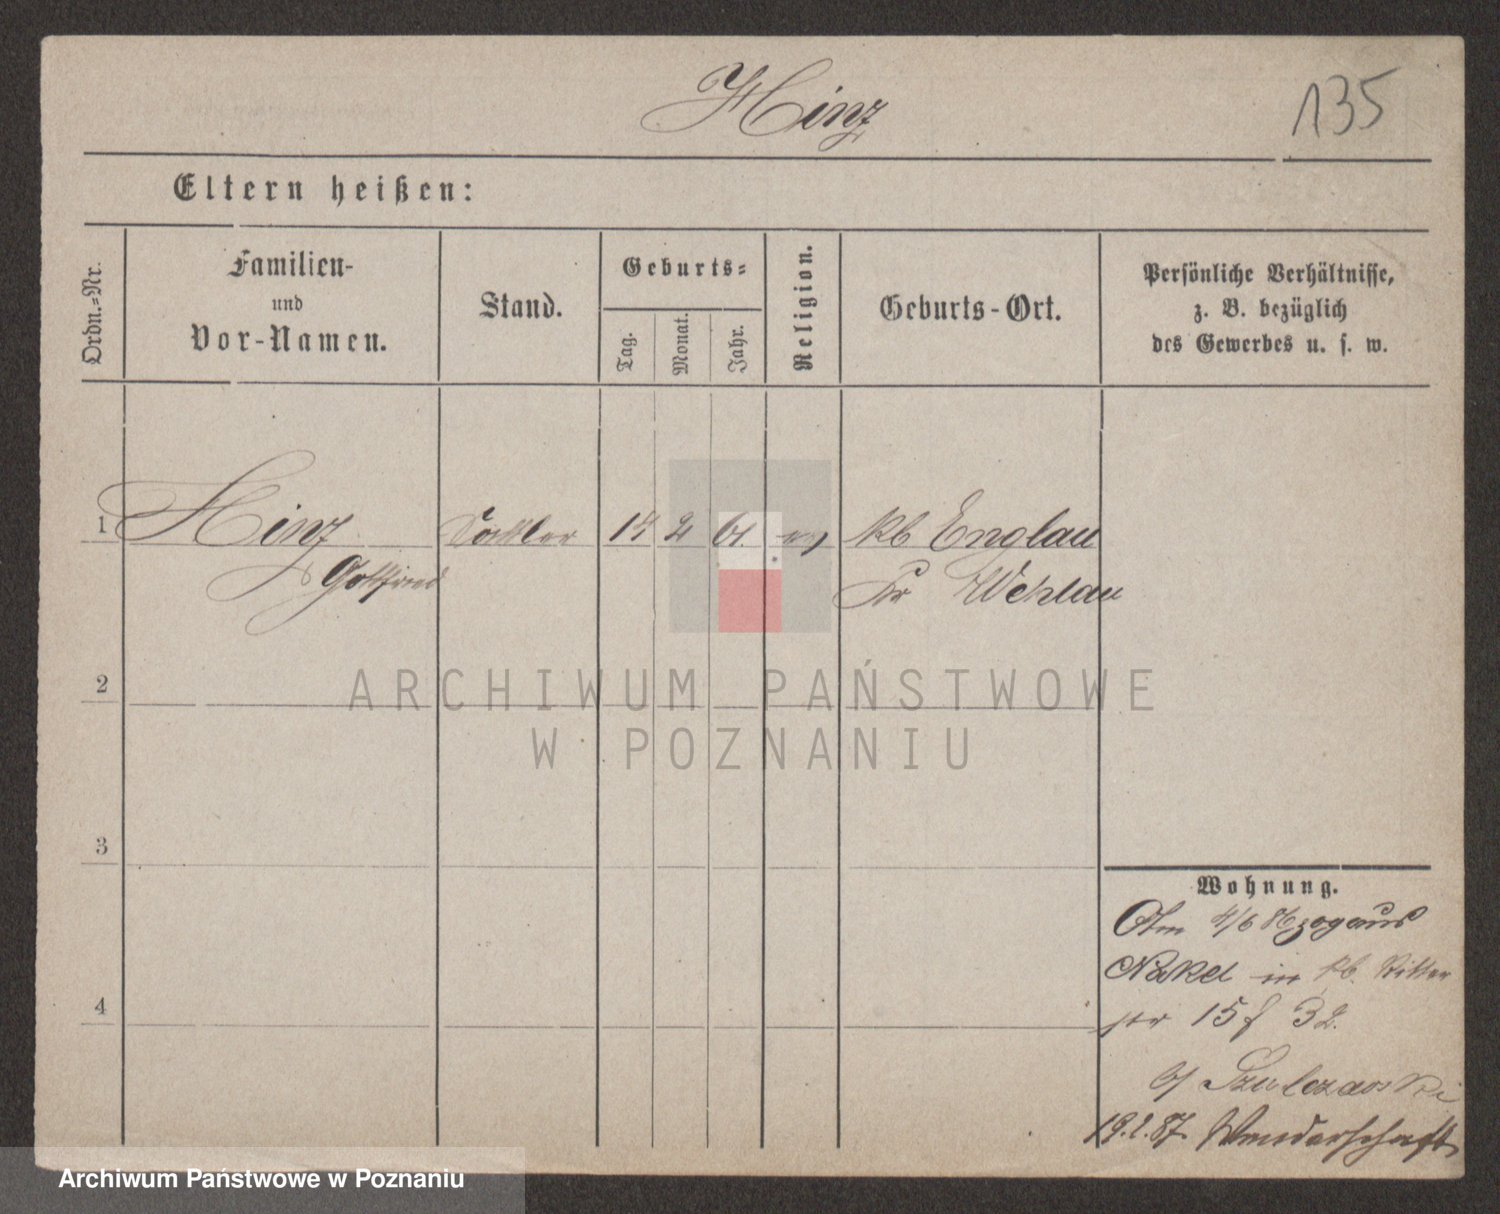 Hinz
135
Eltern heißen:
Ordn.-Nr.
Familien-
und
Vor-Namen.
Stand.
Geburts-
Tag.
Monat.
Jahr.
Religion.
Geburts-Ort.
Persönliche Verhältnisse,
z. B. bezüglich
des Gewerbes u. s. w.
1 Hinz Sattler 14 2 61. ev Kb Englau
Gottfried Kr Wehlau
ARCHIWUM PAŃSTWOWE
W POZNANIU
2
3
4
Wohnung.
Am 4/6 86 zog aus
Nakel in Kb. Ritter
str 15 f 32.
b/ Szulczewski
19.1.87. Wanderschaft
Archiwum Państwowe w Poznaniu